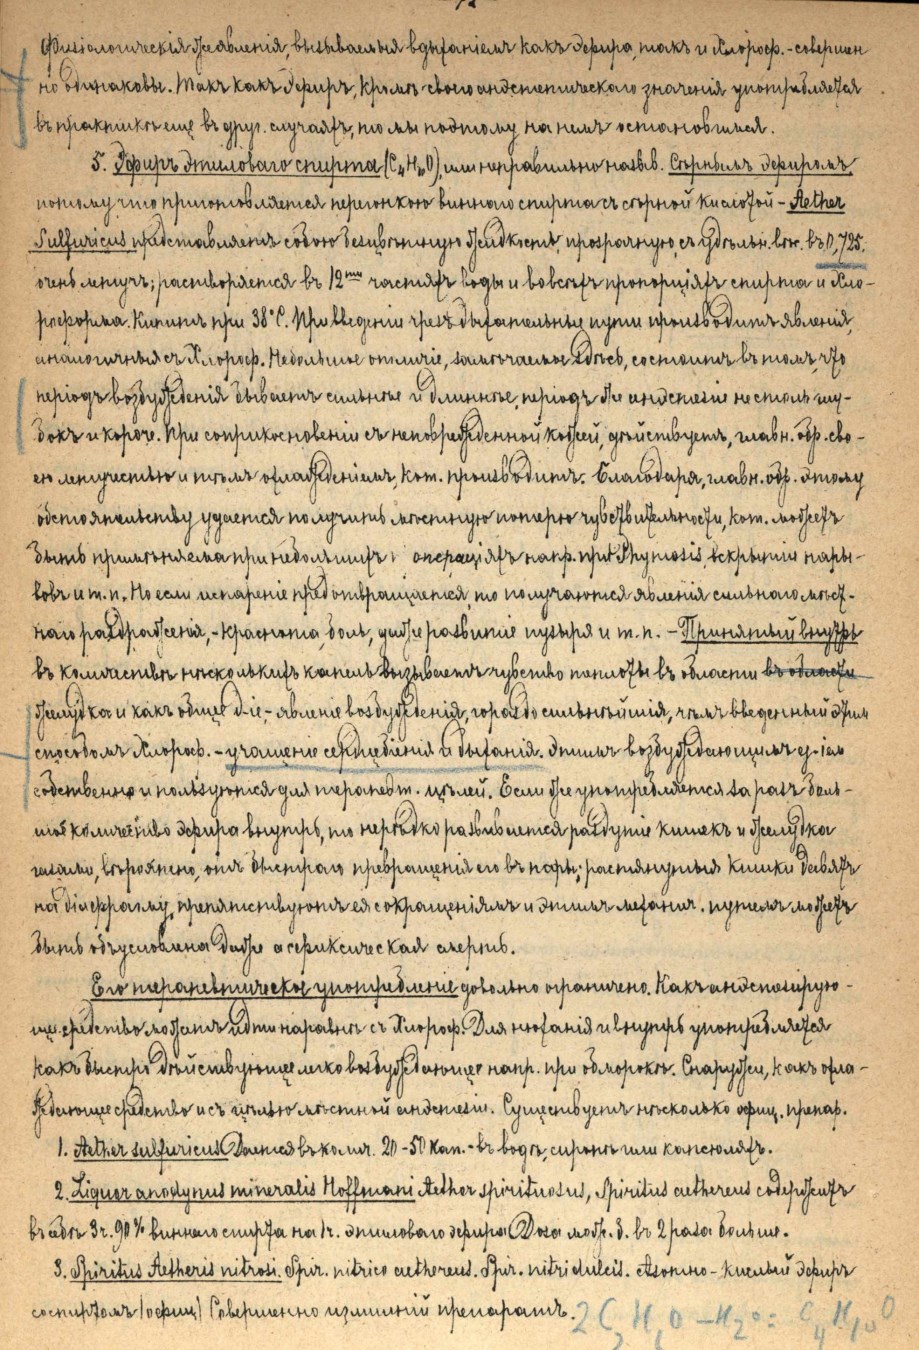 Физiологическiя же явленiя, вызываемыя вдыханiемъ какъ эфира, такъ и хлороф. - совершен
но одинаковы. Такъ какъ эфиръ, кромѣ своего анэстетическаго значенiя употребляется
въ практикѣ еще въ друг. случаяхъ, то мы поэтому на немъ остановимся.
5. Эфиръ этиловаго спирта (C₄H₁₀O), или неправильно назыв. Сѣрнымъ эфиромъ,
потому что приготовляется перегонкою виннаго спирта съ сѣрной кислотой - Aether
Sulfuricus представляетъ собою безцвѣтную жидкость, прозрачную, съ удѣльн. вѣс. въ 0,725.
очень летуч; растворяется въ 12ти частяхъ воды и во всѣхъ пропорцiяхъ спирта и хло-
роформа. Кипитъ при 38°С. При введенiи чрезъ дыхательные пути производитъ явленiя,
аналогичныя съ Хлороф. Небольшое отличiе, замѣчаемое здѣсь, состоитъ въ томъ, что
перiодъ возбужденiя бываетъ сильнѣе и длиннѣе, перiодъ же анэстезiи не столь глу-
бокъ и короче. При соприкосновенiи съ неповрежденной кожей, дѣйствуетъ, главн. обр. сво-
ею летучестью и тѣмъ охлажденiемъ, кот. производитъ. Благодаря, главн. обр. этому
обстоятельству удается получить мѣстную потерю чувствительности, кот. можетъ
быть примѣняема при небольшихъ операцiяхъ напр. при Phymosis, вскрытiи нары-
вовъ и т.п. Но если испаренiе предотвращается, то получаются явленiя сильнаго мѣст-
наго раздраженiя, - краснота, боль, даже развитiе пузыря и т.п. - Принятый внутрь
въ количествѣ нѣсколькихъ капель вызываетъ чувство теплоты въ области въ области
желудка и какъ общее д-iе, - явленiе возбужденiя, гораздо сильнѣйшiя, чѣмъ введенный этим
способомъ Хлороф. - учащенiе сердцебiенiя и дыханiя. Этимъ возбуждающимъ
собственно и пользуются для терапевт. цѣлей. Если же употребляется за разъ боль-
шое количество эфира внутрь, то нерѣдко развивается раздутiе кишекъ и желудка
газами, вѣроятно, отъ быстраго превращенiя его въ пары; растянутыя кишки давятъ
на дiафрагму, препятствуютъ ея сокращенiямъ и этимъ механич. путемъ можетъ
быть обусловлена даже асфиксическая смерть.
Его терапевтическое употребленiе довольно ограничено. Какъ анэстезирую-
щее средство можетъ идти наравнѣ съ Хлороф. Для нюханiя и внутрь употребляется
какъ быстро дѣйствующее легко возбуждающее напр. при обморокѣ. Снаружи, какъ охла-
ждающее средство и съ цѣлью мѣстной анэстезiи. Существуетъ нѣсколько офиц. препар.
1. Aether sulfuricus Дается въ колич. 20-50 кап. - въ водѣ, сиропѣ или капсюляхъ.
2. Liquor anodynus mineralis Hoffmani Aether spirituosus, Spiritus aethereus содержитъ
въ себѣ 3 ч. 90% виннаго спирта на 1 ч. этиловаго эфира Доза мож. б. въ 2 раза больше.
3. Spiritus Aetheris nitrosi. Spir. nitrico aethereus. Spir. nitri dulcis. Азотно-кислый эфиръ
со спиртомъ (офиц) Совершенно излишнiй препаратъ.
2C₂H₆O - H₂O = C₄H₁₀O